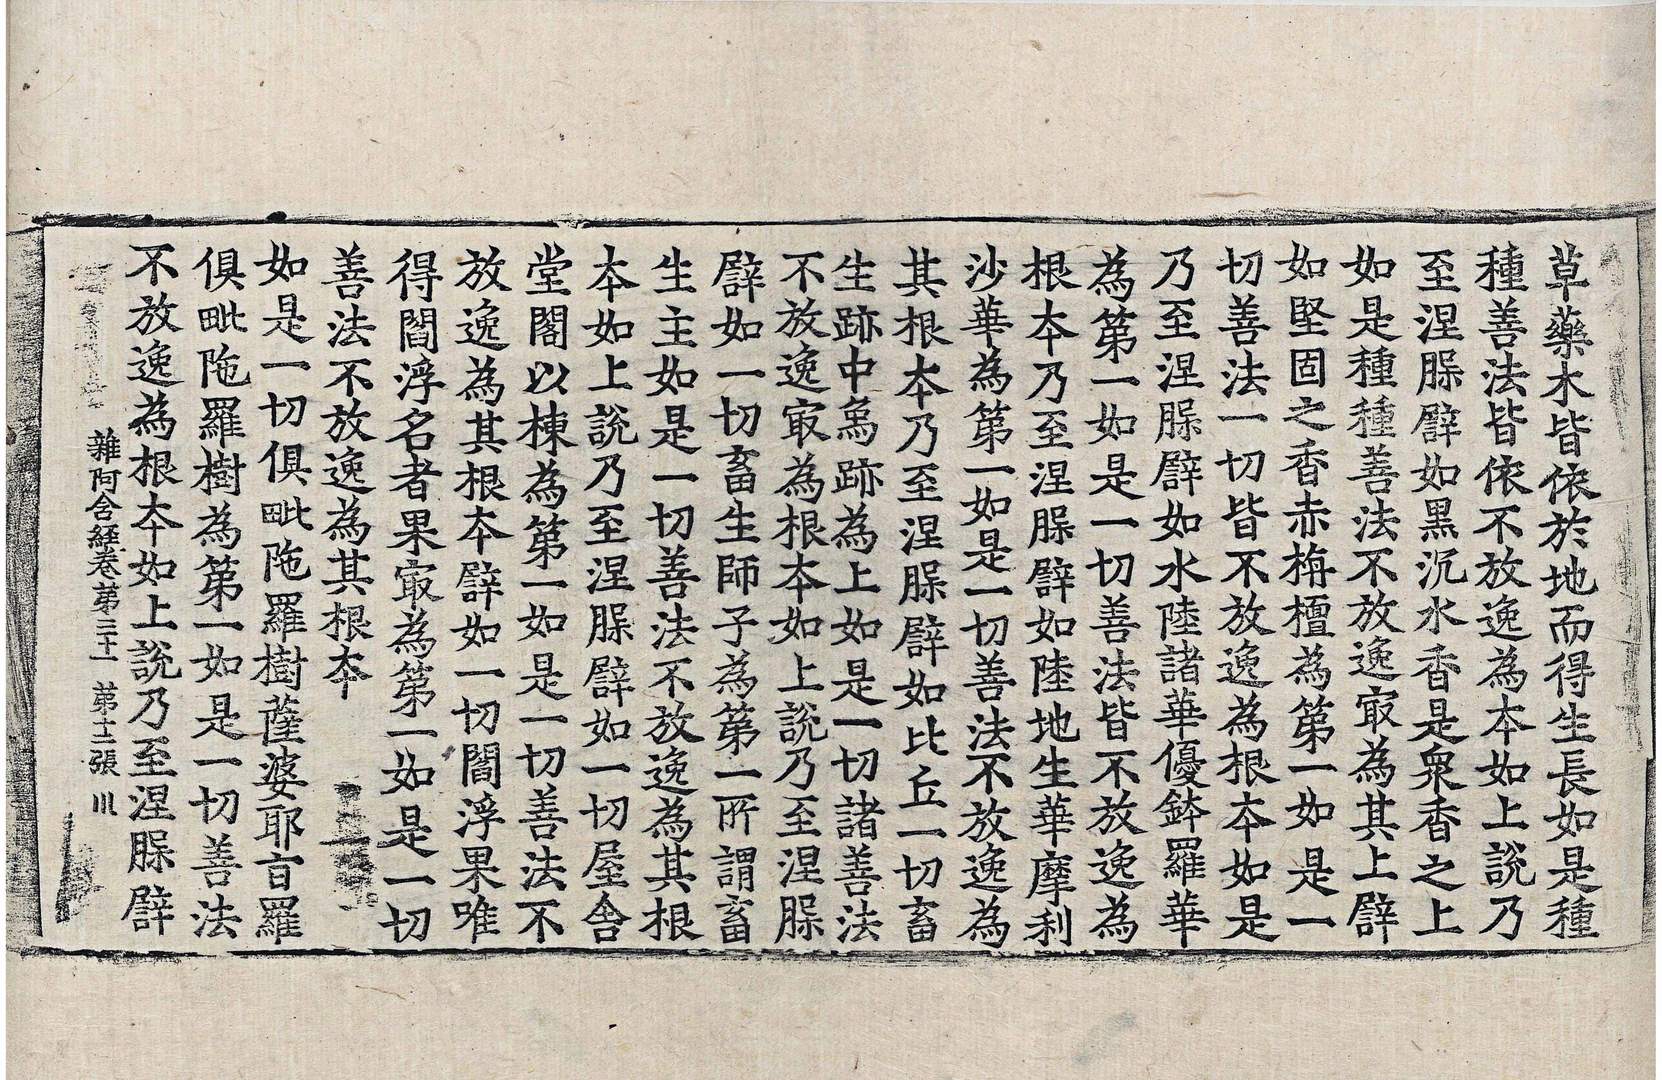 草藥木皆依於地而得生長如是種
種善法皆依不放逸為夲如上說乃
至涅槃譬如黑沉水香是衆香之上
如是種種善法不放逸㝡為其上譬
如堅固之香赤栴檀為第一如是一
切善法一切皆不放逸為根夲如是
乃至涅槃譬如水陸諸華優鉢羅華
為第一如是一切善法皆不放逸為
根夲乃至涅槃譬如陸地生華摩利
沙華為第一如是一切善法不放逸為
其根夲乃至涅槃譬如比丘一切畜
生跡中象跡為上如是一切諸善法
不放逸㝡為根夲如上說乃至涅槃
譬如一切畜生師子為第一所謂畜
生主如是一切善法不放逸為其根
夲如上說乃至涅槃譬如一切屋舍
堂閣以棟為第一如是一切善法不
放逸為其根夲譬如一切閻浮果唯
得閻浮名者果㝡為第一如是一切
善法不放逸為其根夲
如是一切俱毗陁羅樹薩婆耶旨羅
俱毗陁羅樹為第一如是一切善法
不放逸為根夲如上說乃至涅槃譬
雜阿含経卷第三十一 第十二張 川